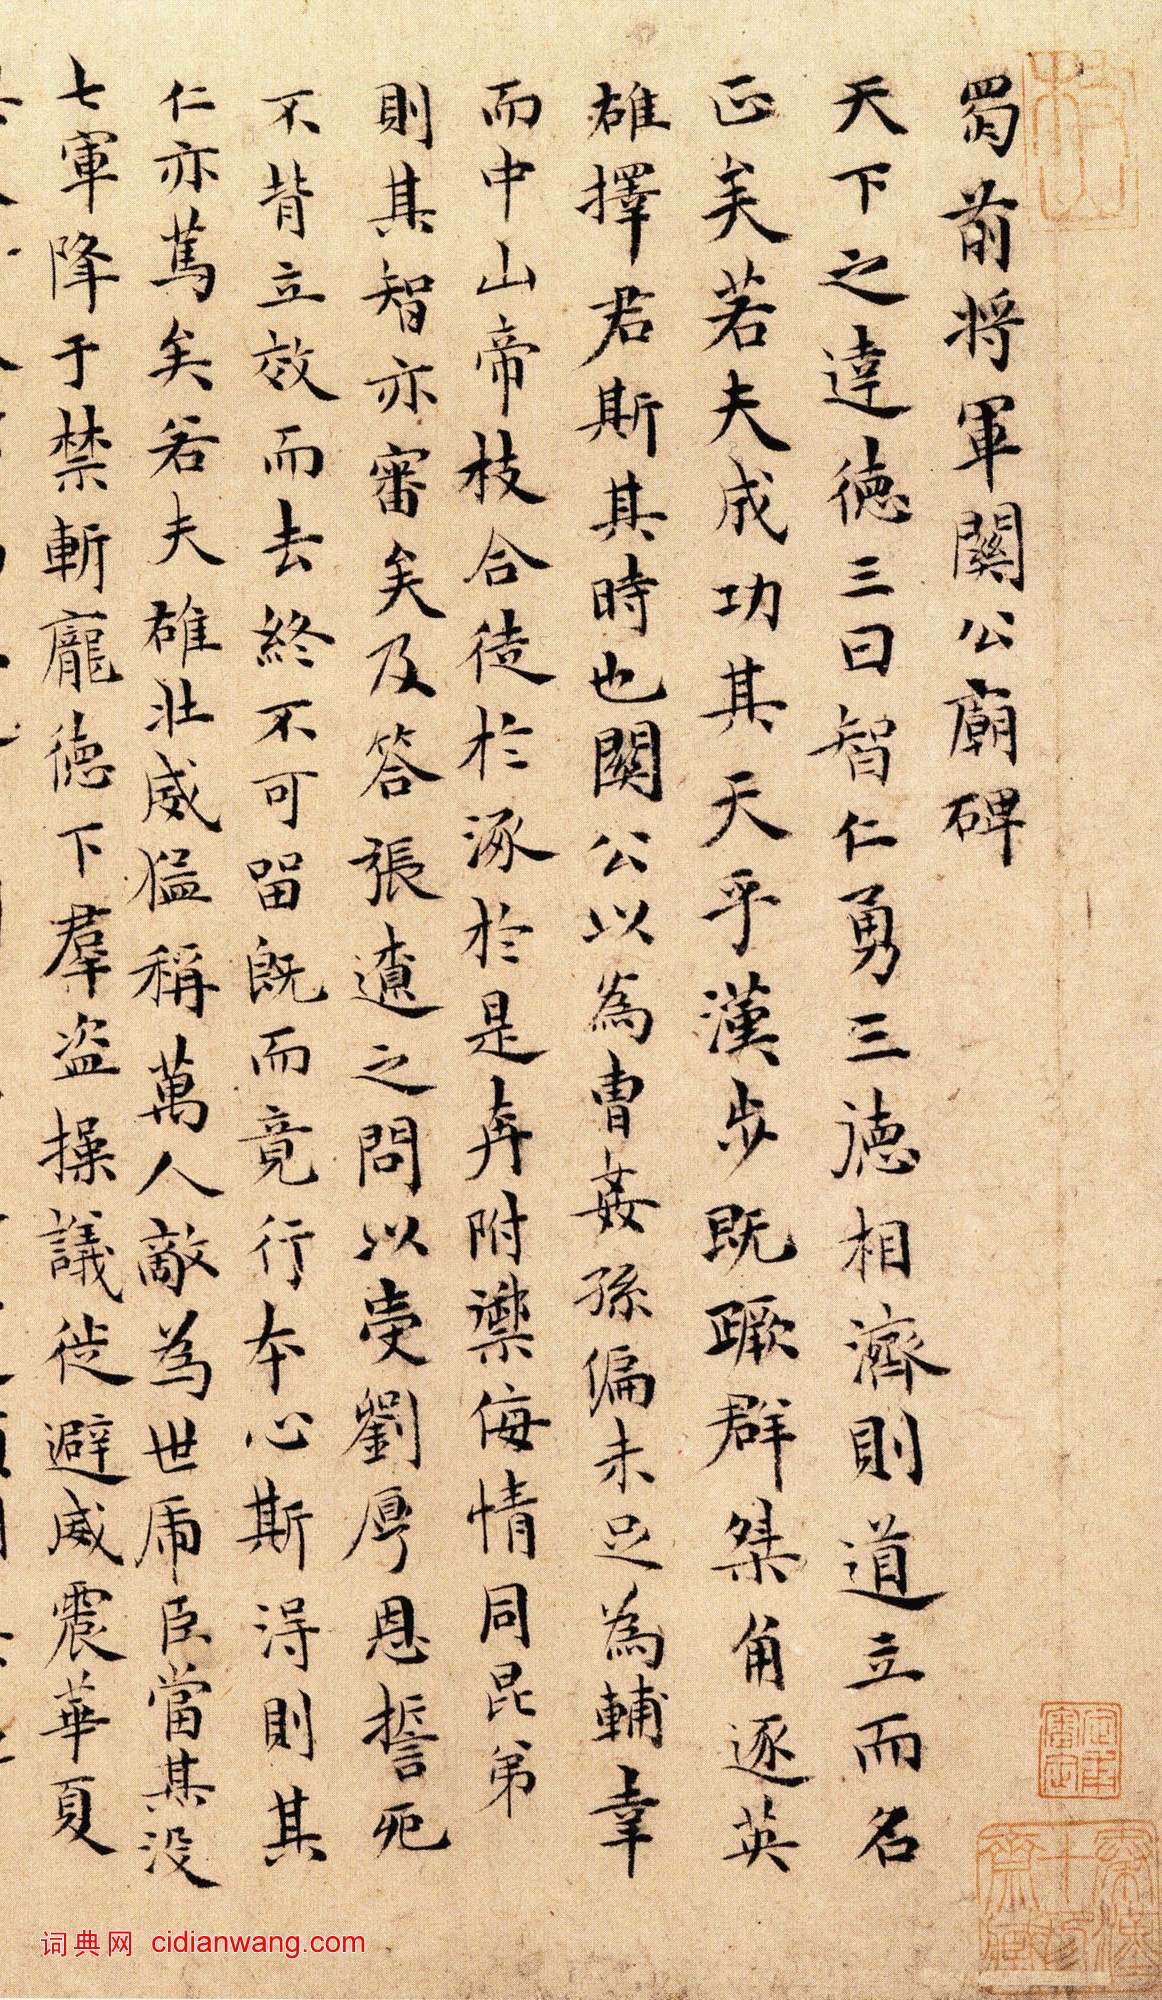 蜀前将軍關公廟碑
天下之達徳三曰智仁勇三徳相濟則道立而名
正矣若夫成功其天乎漢步既蹶群桀角逐英
雄擇君斯其時也關公以為曹姦孫偏未足為輔幸
而中山帝枝合徒於涿於是奔附禦侮情同昆弟
則其智亦審矣及答張遼之問以受劉厚恩誓死
不背立效而去終不可留既而竟行本心斯得則其
仁亦篤矣若夫雄壯威猛稱萬人敵為世虎臣當其没
七軍降于禁斬龐徳下羣盜操議徙避威震華夏
词典网 cidianwang.com